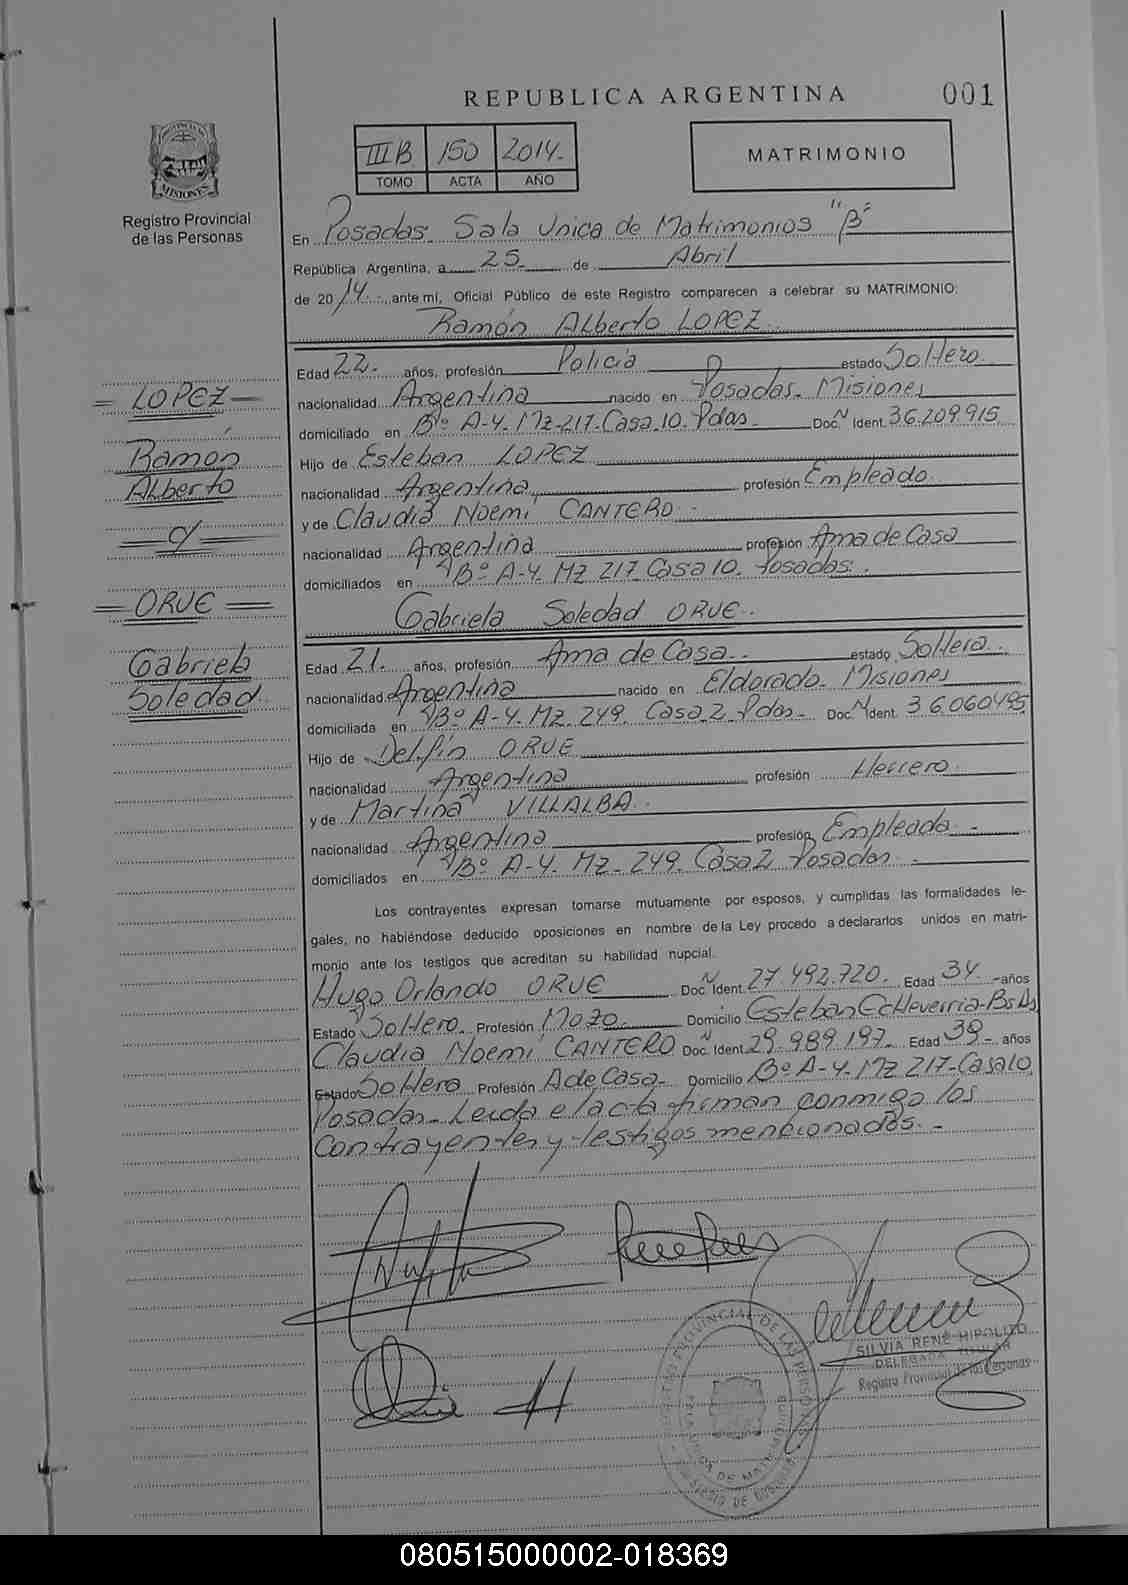 REPUBLICA ARGENTINA 001
III B 150 2014.-
TOMO ACTA AÑO
MATRIMONIO
PROVINCIA DE MISIONES
Registro Provincial
de las Personas
En Posadas Sala Unica de Matrimonios "B"
República Argentina, a 25 de Abril
de 2014.-, ante mí, Oficial Público de este Registro comparecen a celebrar su MATRIMONIO:
Ramón Alberto LOPEZ.
Edad 22.- años, profesión Policía estado Soltero
nacionalidad Argentina nacido en Posadas. Misiones
domiciliado en Bº A-4. Mz-217-Casa.10. Pdas. Doc. N Ident. 36.209.915
Hijo de Esteban LOPEZ
nacionalidad Argentina profesión Empleado
y de Claudia Noemí CANTERO.-
nacionalidad Argentina profesión Ama de Casa
domiciliados en Bº A-4. Mz 217 Casa 10. Posadas.
LOPEZ
Ramón
Alberto
c/
ORUE
Gabriela
Soledad
Gabriela Soledad ORUE.
Edad 21.- años, profesión Ama de Casa estado Soltera
nacionalidad Argentina nacido en Eldorado. Misiones
domiciliada en Bº A-4. Mz. 249. Casa 2 Pdas. Doc. N Ident. 36.060495
Hijo de Delfín ORUE
nacionalidad Argentina profesión Herrero
y de Martina VILLALBA.
nacionalidad Argentina profesión Empleada.-
domiciliados en Bº A-4. Mz-249. Casa 2 Posadas.
Los contrayentes expresan tomarse mutuamente por esposos, y cumplidas las formalidades le-
gales, no habiéndose deducido oposiciones en nombre de la Ley procedo a declararlos unidos en matri-
monio ante los testigos que acreditan su habilidad nupcial.
Hugo Orlando ORUE Doc. N Ident. 27.492.720. Edad 34.- años
Estado Soltero. Profesión Mozo. Domicilio Esteban Echeverria-Bs As
Claudia Noemí CANTERO Doc. N Ident. 29.989.197- Edad 39- años
Estado Soltera Profesión A de Casa. Domicilio Bº A-4. Mz 217-Casa 10
Posadas. Leída el acta firman conmigo los
contrayentes y testigos mencionados.-
SILVIA RENÉ HIPOLITO
DELEGADA TITULAR
Registro Provincial de las Personas
080515000002-018369